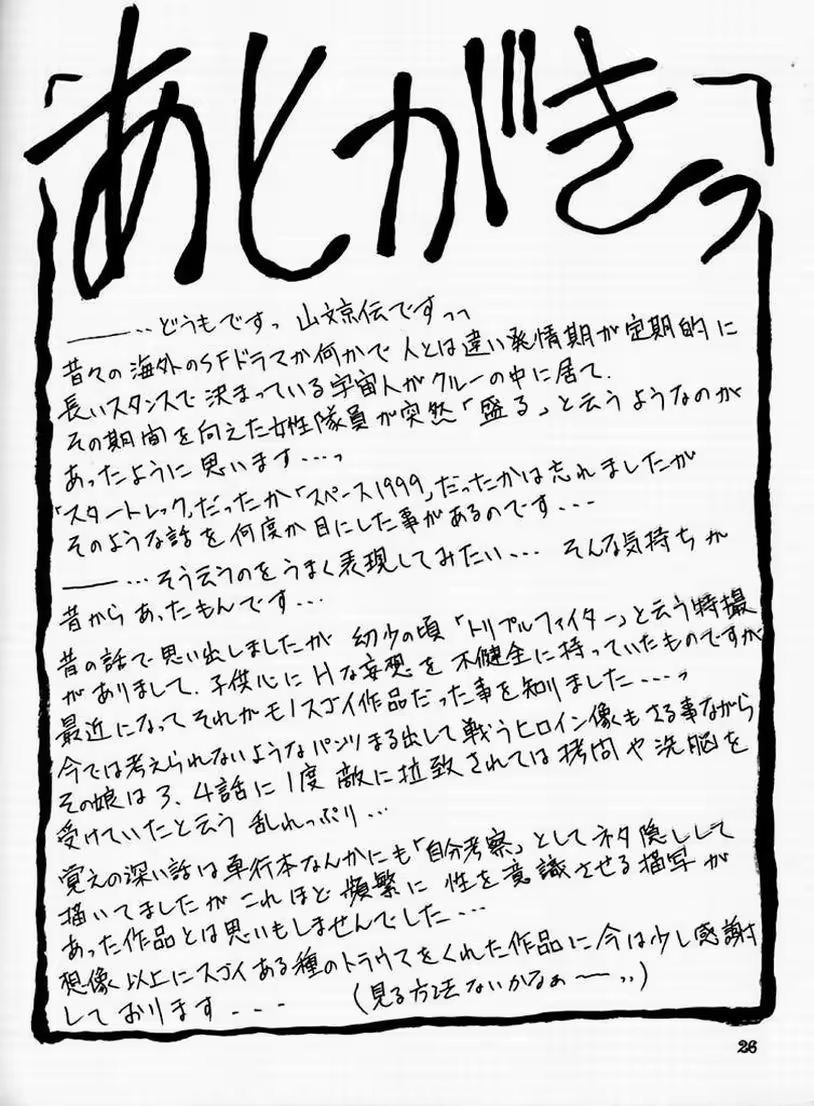 あとがきっ
――‥どうもですっ 山文京伝ですっっ
昔々の海外のSFドラマか何かで人とは違い発情期が定期的に
長いスタンスで決まっている宇宙人がクルーの中に居て.
その期間を向えた女性隊員が突然「盛る」と云うようなのが
あったように思います・・・っ
「スタートレック」だったか「スペース1999」だったかは忘れましたが
そのような話を何度か目にした事があるのです・・・
――・・・そう云うのをうまく表現してみたい・・・ そんな気持ちが
昔からあったもんです・・・
昔の話で思い出しましたが 幼少の頃「トリプルファイター」と云う特撮
がありまして、子供心にHな妄想を不健全に持っていたものですが
最近になってそれがモノスゴイ作品だった事を知りました・・・・っ
今では考えられないようなパンツまる出しで戦うヒロイン像もさる事ながら
その娘は3、4話に1度 敵に拉致されては拷問や洗脳を
受けていたと云う 乱れっぷり・・・
覚えの深い話は単行本なんかにも「自分考察」としてネタ隠しして
描いてましたがこれほど頻繁に 性を意識させる描写が
あった作品とは思いもしませんでした・・・
想像以上にスゴイある種のトラウマをくれた作品に今は少し感謝
しております・・・ (見る方法ないかなぁー‥)
26